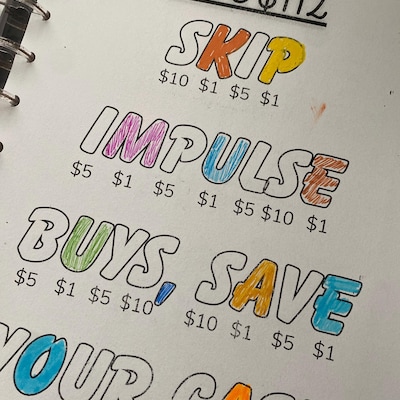 SKIP
$10 $1 $5 $1
IMPULSE
$5 $1 $5 $1 $5 $10 $1
BUYS, SAVE
$5 $1 $5 $10 $10 $1 $5 $1
YOUR